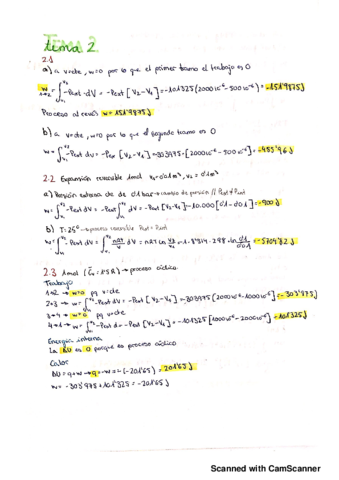 tema 2
2.1
a) a V=cte, w=0 por lo que el primer tramo el trabajo es 0
w = ∫ -Pext·dV = -Pext [V2-V1] = -101325 (2000·10⁻⁶-500·10⁻⁶) = -151'9875 J
Proceso al revés w = 151'9875 J
b) a V=cte, w=0 por lo que el segundo tramo es 0
w = ∫ -Pext dV = -Pex [V2-V1] = -303975·[2000·10⁻⁶-500·10⁻⁶] =
2.2 Expansión reversible 1mol V1=0'01m³, V2=0'1m³
a) Presión externa de 0'1 bar → cambio de presión // Pext ≠ Pint
w = ∫ -Pext dV = -Pext ∫ dV = -Pext [V2-V1] = -10.000 [0'1-0'01] = -900 J
b) T=25º → proceso reversible Pext = Pint
w = ∫ -Pext dV = ∫ nRT/V dV = nRT ln V2/V1 = -1·8'314·298·ln 0'1/0'01 =
2.3 1mol → proceso cíclico
Trabajo
1→2 → w=0 pq V=cte
2→3 → w = ∫ -Pext dV = -Pext [V2-V1] = -303975 (2000·10⁻⁶-1000·10⁻⁶) = -303'975 J
3→4 → w=0 pq V=cte
4→1 → w = ∫ -Pext dV = -Pext [V2-V1] = -101325 [1000·10⁻⁶-2000·10⁻⁶] = 101'325 J
Energía interna
La ΔU es 0 porque es proceso cíclico
Calor
ΔU = q+w → q = -w = -(-201'65) = 201'65 J
w = -303'975 + 101'325 = -201'65 J
Scanned with CamScanner